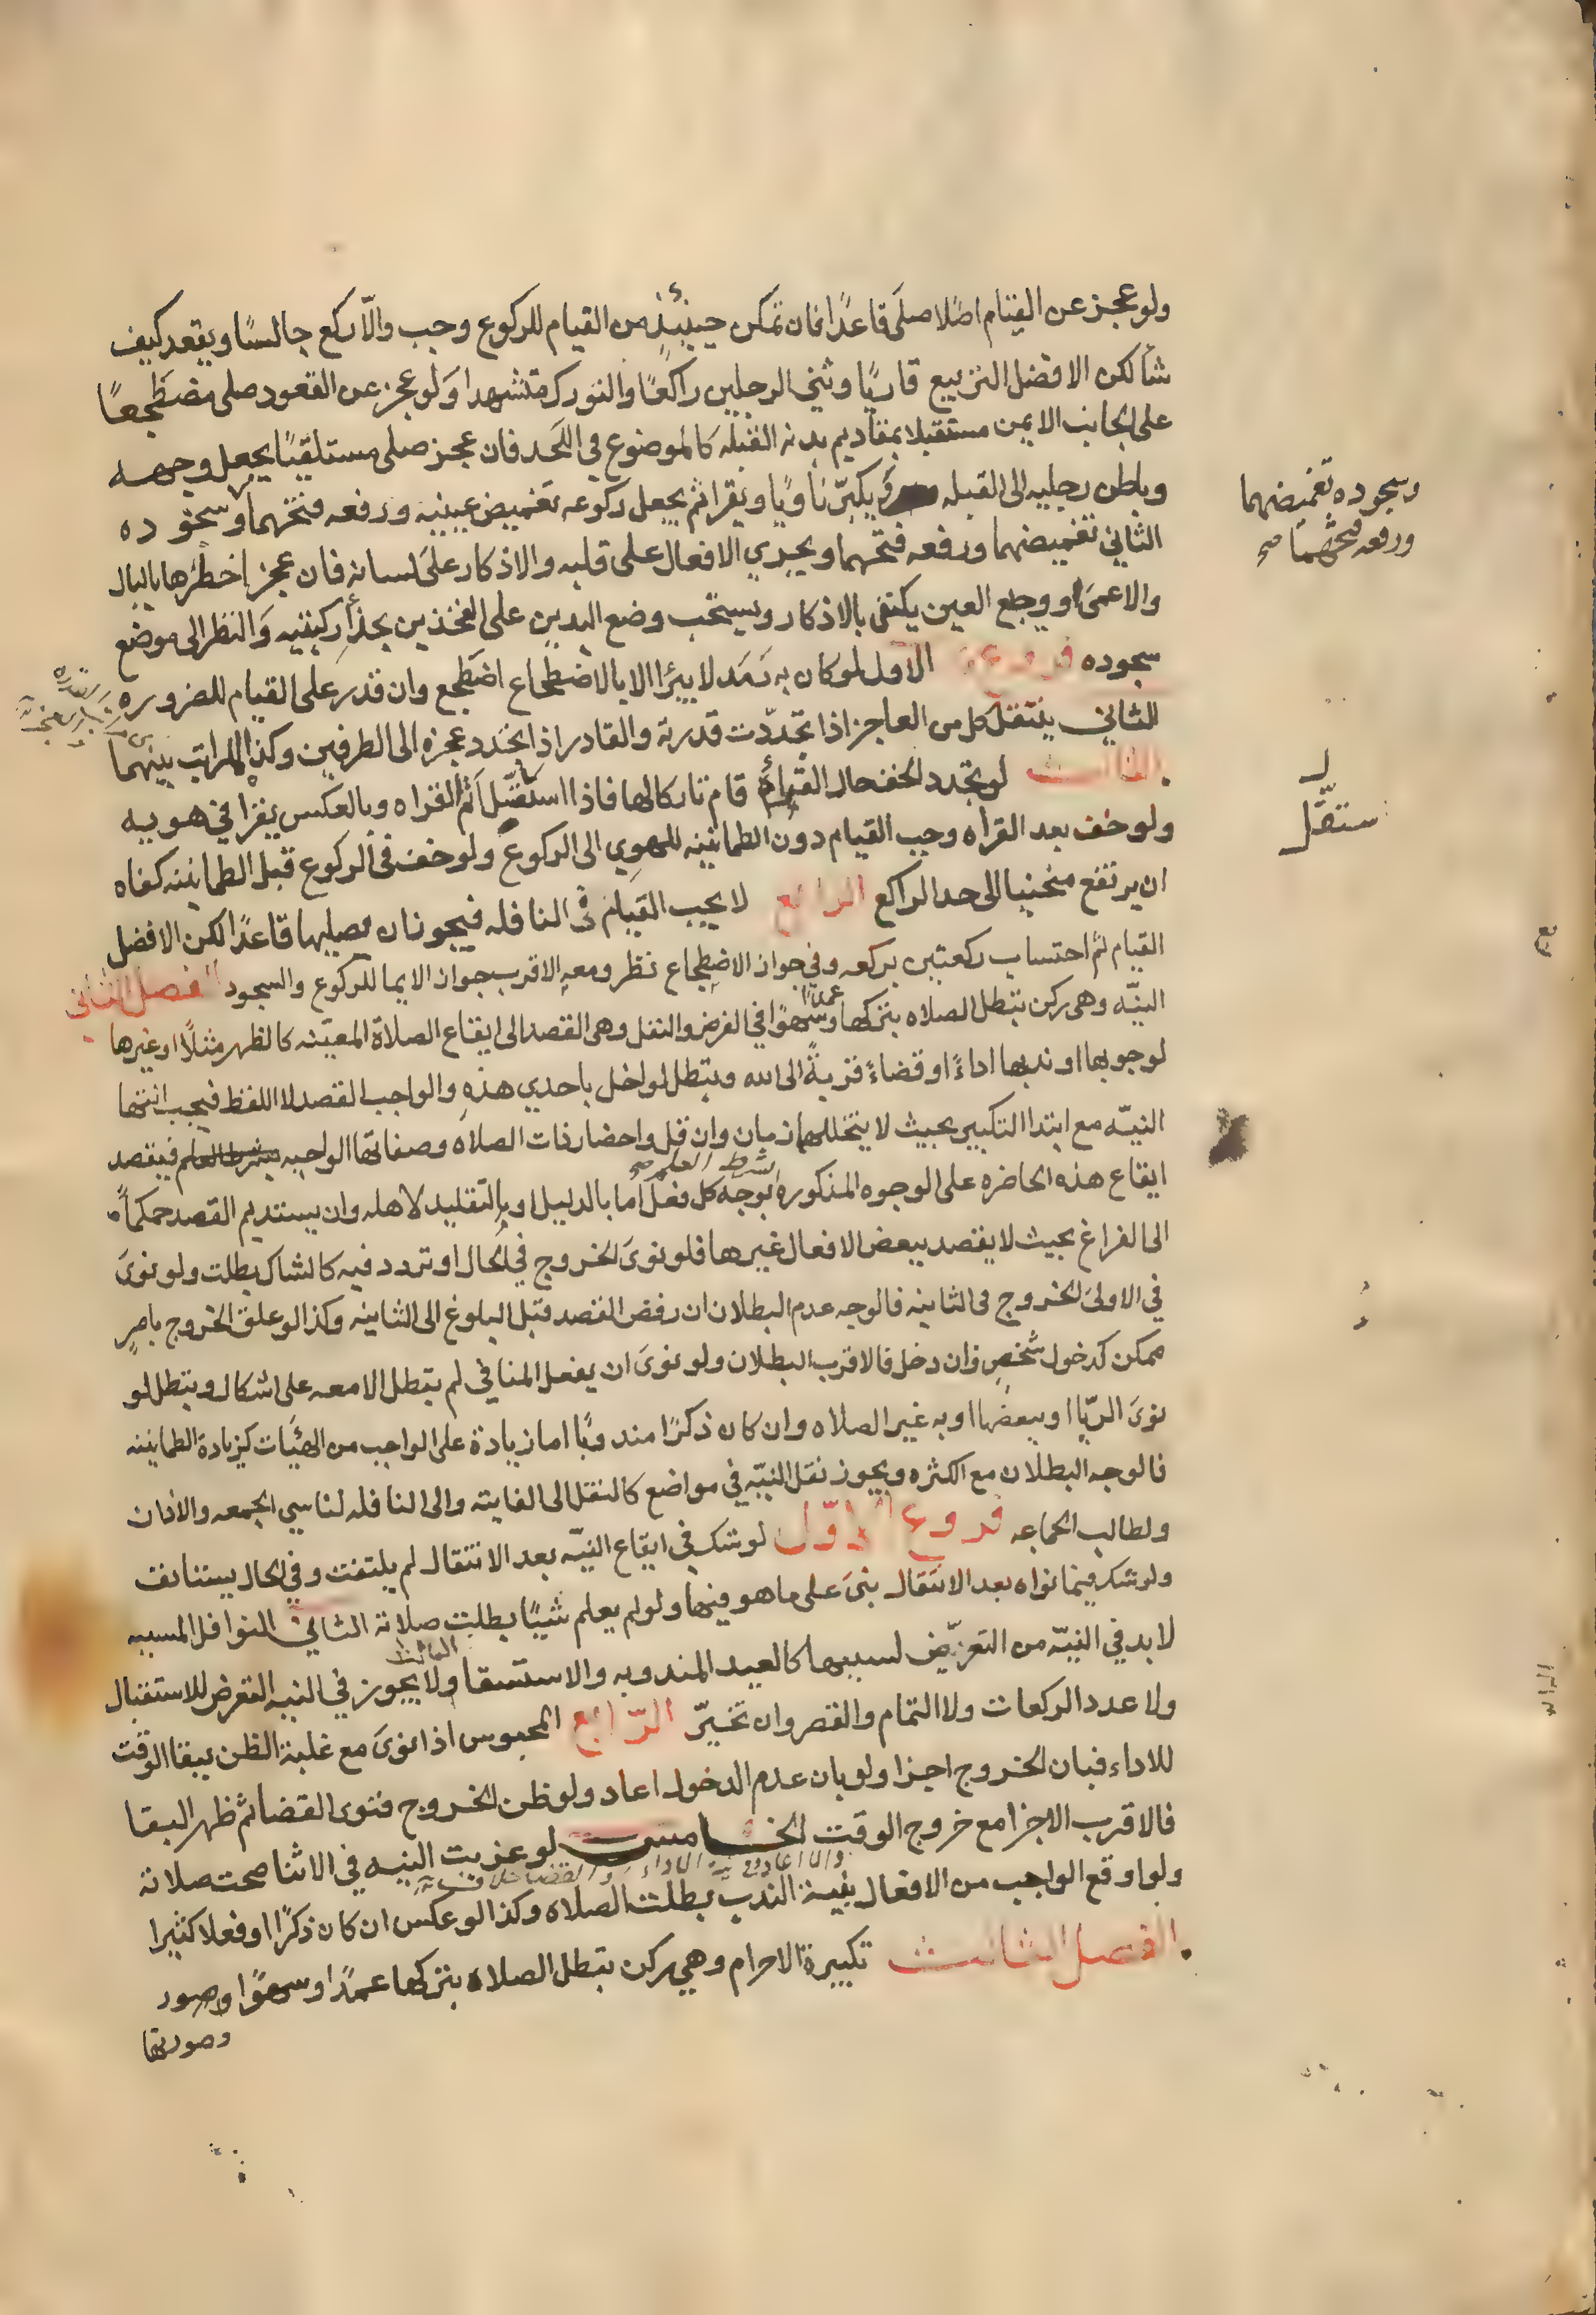 ولو عجز عن القيام اصلا صلى قاعدًا فان تمكن حينئذٍ من القيام للركوع وجب والّا ركع جالسًا ويقعد كيف
شا لكن الافضل التربيع قاريًا وثني الرجلين راكعًا والتورك متشهدا ولو عجز عن القعود صلى مضطجعًا
على الجانب الايمن مستقبلا بمقاديم بدنه القبله كالموضوع في اللحد فان عجز صلى مستلقيًا يجعل وجهه
وباطن رجليه الى القبله ويكبّر ناويًا ويقرا ثم يجعل ركوعه تغميض عينيه ورفعه فتحهما وسجوده
وسجوده تغميضهما
ورفعه فتحهما صح
الثاني تغميضهما ورفعه فتحهما ويجري الافعال على قلبه والاذكار على لسانه فان عجز اخطرها بالبال
والاعمى او وجع العين يكتفى بالاذكار ويستحب وضع اليدين على الفخذين بحذا ركبتيه والنظر الى موضع
سجوده فروع الاول لو كان به رَمَد لا يبرا الا بالاضطجاع اضطجع وان قدر على القيام للضروره
الثاني ينتقل كل من العاجز اذا تجدّدت قدرته والقادر اذا تجدد عجزه الى الطرفين وكذا المراتب بينهما
الثالث لو تجدد الخف حال القراءة قام تاركا لها فاذا استقلّ اتم القراه وبالعكس يقرا في هويه
ستقلّ
ولو خف بعد القراه وجب القيام دون الطمانينه للهوي الى الركوع ولو خف في الركوع قبل الطمانينه كفاه
ان يرتفع منحنيا الى حد الراكع الرابع لا يجب القيام في النافله فيجوز ان يصليها قاعدًا لكن الافضل
القيام ثم احتساب ركعتين بركعه وفي جواز الاضطجاع نظر ومعه الاقرب جواز الايما للركوع والسجود الفصل الثاني
النيّه وهى ركن تبطل الصلاه بتركها عمدًا وسهوًا في الفرض والنفل وهى القصد الى ايقاع الصلاة المعيّنه كالظهر مثلًا او غيرها
لوجوبها او ندبها اداءً او قضاءً قربةً الى الله وتبطل لو اخل باحدي هذهِ والواجب القصد لا اللفظ فيجب انتها
النيّه مع ابتدا التكبير بحيث لا يتخللهما زمان وان قل واحضار ذات الصلاه وصفاتها الواجبه فيقصد
ايقاع هذه الحاضره على الوجوه المذكوره بشرط العلم صح بوجه كل فعل اما بالدليل او بالتقليد لاهله وان يستديم القصد حكمًا
الى الفراغ بحيث لا يقصد ببعض الافعال غيرها فلو نوىَ الخروج في الحال او تردد فيه كالشاك بطلت ولو نوىَ
في الاولىَ الخروج في الثانيه فالوجه عدم البطلان ان رفض القصد قبل البلوغ الى الثانيه وكذا لو علق الخروج بامرٍ
ممكن كدخول شخصٍ فان دخل فالاقرب البطلان ولو نوىَ ان يفعل المنافي لم تبطل الا معه على اشكال وتبطل لو
نوىَ الريّا او ببعضها او به غير الصلاه وان كان ذكرًا مندوبًا اما زيادة على الواجب من الهيئات كزيادة الطمانينه
فالوجه البطلان مع الكثره ويجوز نقل النيّه في مواضع كالنقل الى الفايته والى النافله لناسي الجمعه والاذان
ولطالب الجماعه فروع الاوّل لو شك في ايقاع النيّه بعد الانتقال لم يلتفت وفي الحال يستانف
ولو شك فيما نواه بعد الانتقال بنىَ على ما هو فيها ولو لم يعلم شيئًا بطلت صلاته الثاني النوافل المسببه
لا بد في النيّه من التعرّض لسببها كالعيد المندوبه والاستسقا الثالث ولا يجوز في النيه التعرض للاستقبال
ولا عدد الركعات ولا التمام والقصر وان تخيّر الرّابع المحبوس اذا نوىَ مع غلبة الظن ببقا الوقت
للاداء فبان الخروج اجزا ولو بان عدم الدخول اعاد ولو ظن الخروج فنوى القضا ثم ظهر البقا
فالاقرب الاجزا مع خروج الوقت الخامس لو عزبت النيه في الاثنا صحت صلاته
ولو اوقع الواجب من الافعال بنية الندب بطلت الصلاه وكذا لو عكس ان كان ذكرًا او فعلا كثيرا
الفصل الثالث تكبيرة الاحرام وهي ركن تبطل الصلاه بتركها عمدًا او سهوًا وصور
وصورتها